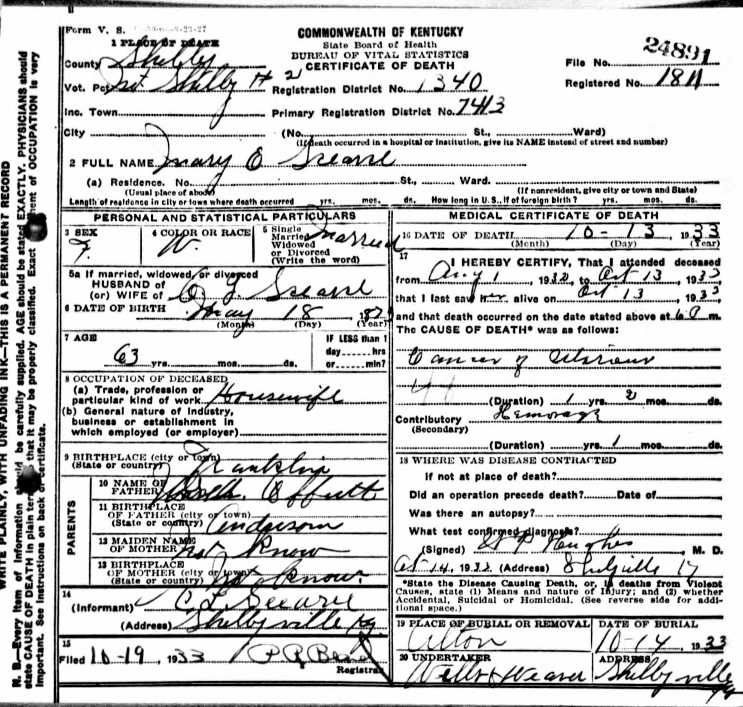 Form V. S.
COMMONWEALTH OF KENTUCKY
State Board of Health
BUREAU OF VITAL STATISTICS
CERTIFICATE OF DEATH
File No. 24891
Registered No. 1811
1 PLACE OF DEATH
County Shelby
Vot. Pct Shelby # 2 Registration District No. 1340
Inc. Town Primary Registration District No. 7413
City (No. St., Ward)
(If death occurred in a hospital or institution, give its NAME instead of street and number)
2 FULL NAME Mary E
(a) Residence. No. St., Ward.
(Usual place of abode) (If nonresident, give city or town and State)
Length of residence in city or town where death occurred yrs. mos. ds. How long in U. S., if of foreign birth? yrs. mos. ds.
PERSONAL AND STATISTICAL PARTICULARS
3 SEX F.
4 COLOR OR RACE W.
5 Single Married Widowed or Divorced (Write the word) Married
5a If married, widowed, or divorced
HUSBAND of
(or) WIFE of
6 DATE OF BIRTH May 18
(Month) (Day) (Year)
7 AGE 63 yrs. mos. ds.
IF LESS than 1 day hrs or min?
8 OCCUPATION OF DECEASED
(a) Trade, profession or particular kind of work Housewife
(b) General nature of Industry, business or establishment in which employed (or employer)
9 BIRTHPLACE (city or town)
(State or country) Franklin
PARENTS
10 NAME OF FATHER Offutt
11 BIRTHPLACE OF FATHER (city or town)
(State or country) Anderson
12 MAIDEN NAME OF MOTHER not know
13 BIRTHPLACE OF MOTHER (city or town)
(State or country) not know.
14
(Informant)
(Address) Shelbyville Ky.
15
Filed 10-19, 1933
Registrar
MEDICAL CERTIFICATE OF DEATH
16 DATE OF DEATH 10-13, 1933
(Month) (Day) (Year)
17
I HEREBY CERTIFY, That I attended deceased
from Aug 1, 1932, to Oct 13, 1933
that I last saw her alive on Oct 13, 1933
and that death occurred on the date stated above at 6 P m.
The CAUSE OF DEATH* was as follows:
Cancer of
(Duration) 1 yrs. 2 mos. ds.
Contributory Hemorage
(Secondary)
(Duration) yrs. 1 mos. ds.
18 WHERE WAS DISEASE CONTRACTED
If not at place of death?
Did an operation precede death? Date of
Was there an autopsy?
What test confirmed diagnosis?
(Signed) Hughes M. D.
Oct 14, (Address) Shelbyville Ky
*State the Disease Causing Death, or, in deaths from Violent
Causes, state (1) Means and nature of Injury; and (2) whether
Accidental, Suicidal or Homicidal. (See reverse side for addi-
tional space.)
19 PLACE OF BURIAL OR REMOVAL Alton
DATE OF BURIAL 10-14 1933
20 UNDERTAKER
ADDRESS Shelbyville Ky
WRITE PLAINLY, WITH UNFADING INK—THIS IS A PERMANENT RECORD
N. B.—Every item of information should be carefully supplied. AGE should be stated EXACTLY. PHYSICIANS should
state CAUSE OF DEATH in plain terms that it may be properly classified. Exact statement of OCCUPATION is very
important. See instructions on back of certificate.